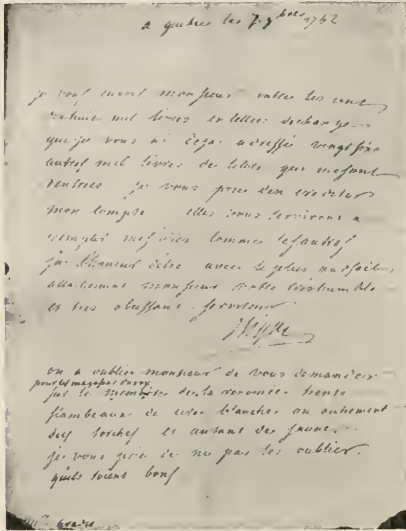 a quebec les 7: 9bre 1752
je vous envoi monsieur outre les cent
mil livres en lettres de change
que je vous ai deja adressé vingt six
autres mil livres de lettres que me sont
rentrées je vous prie den crediter
mon compte elles vous serviront a
remplir mes vües comme les autres
jai l'honneur d'être avec le plus parfait
attachement monsieur votre tres humble
et tres obeissant serviteur
Bigot
on a oublié monsieur de vous demander
pour les magasins du roy
sur le memoire de la verominie trente
flambeaux de cire blanche ou autrement
des torches et autant de jaune.
je vous prie de ne pas les oublier
quils soient bons